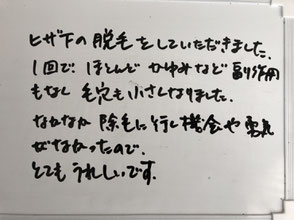 ヒザ下の脱毛をしていただきました。
1回で、ほとんど かゆみなど 副作用
もなし 毛穴も小さくなりました。
なかなか 除毛に行く機会や勇気
がなかったので、
とても うれしいです。